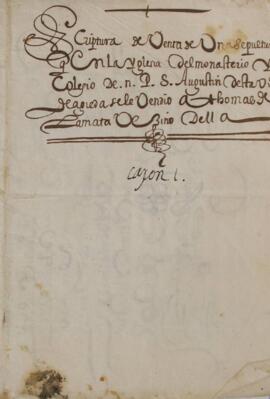 Scriptura de Venta de Una sepultu
q̃ en la yglesia del monasterio y
Colegio de n. P. S. Augustin desta
se le Vendio a thomas de
Zamata Veçino della
caxon 1.